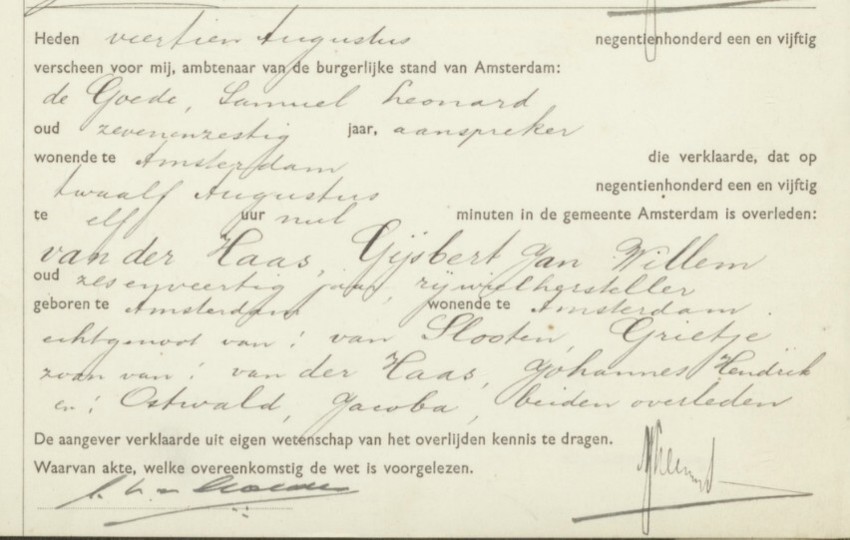 Heden veertien Augustus negentienhonderd een en vijftig
verscheen voor mij, ambtenaar van de burgerlijke stand van Amsterdam:
de Goede, Samuel Leonard
oud zevenenzestig jaar, aanspreker
wonende te Amsterdam die verklaarde, dat op
twaalf Augustus negentienhonderd een en vijftig
te elf uur nul minuten in de gemeente Amsterdam is overleden:
van der Haas, Gijsbert Jan Willem
oud zesenveertig jaar, rijwielhersteller
geboren te Amsterdam wonende te Amsterdam.
echtgenoot van: van Slooten, Grietje
zoon van: van der Haas, Johannes Hendrik
en: Ostwald, Jacoba, beiden overleden
De aangever verklaarde uit eigen wetenschap van het overlijden kennis te dragen.
Waarvan akte, welke overeenkomstig de wet is voorgelezen.